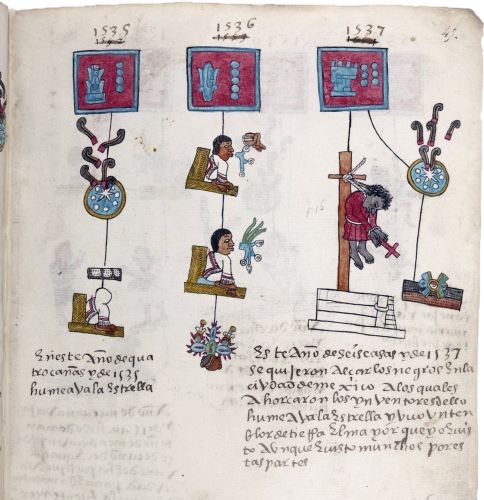 1535
1536
1537
45.
En este Año de qua
tro cañas y de 1535
humeava la estrella
Este Año de seis casas y de 1537
se quisieron alcar los negros en la
ciudad de mexico a los quales
ahorcaron los ynventores dello
humeava la estrella y uvo un ten
blor de tierra el mayor que yo e vis
to Aunque e visto munchos por es
tas partes